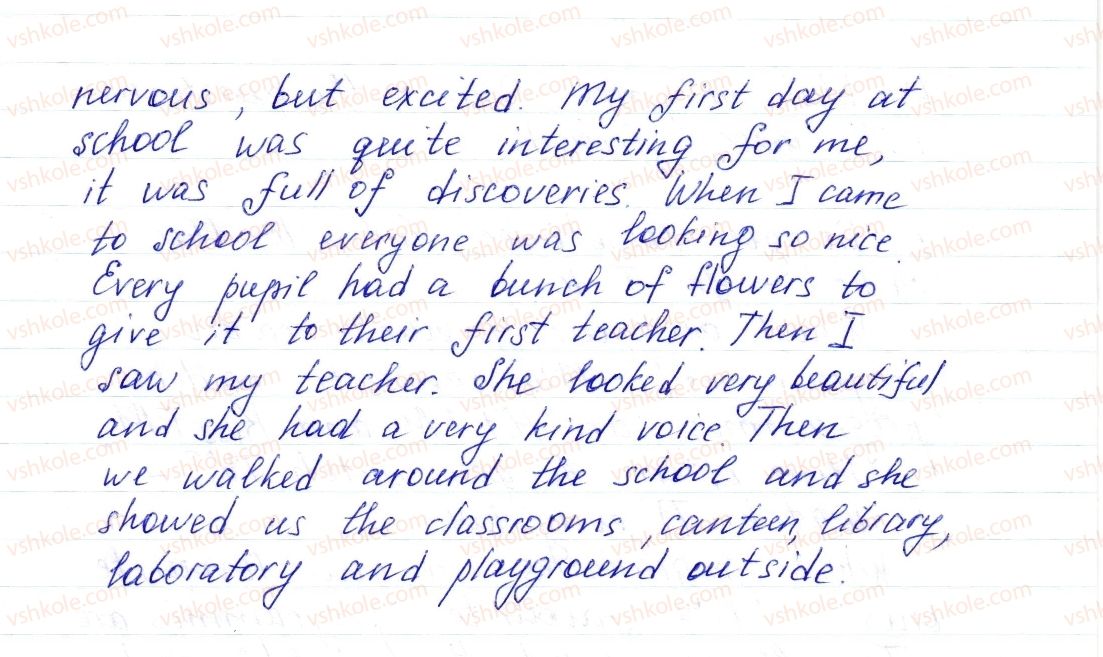 nervous, but excited. My first day at
school was quite interesting for me,
it was full of discoveries. When I came
to school everyone was looking so nice.
Every pupil had a bunch of flowers to
give it to their first teacher. Then I
saw my teacher. She looked very beautiful
and she had a very kind voice. Then
we walked around the school and she
showed us the classrooms, canteen, library,
laboratory and playground outside.
vshkole.com